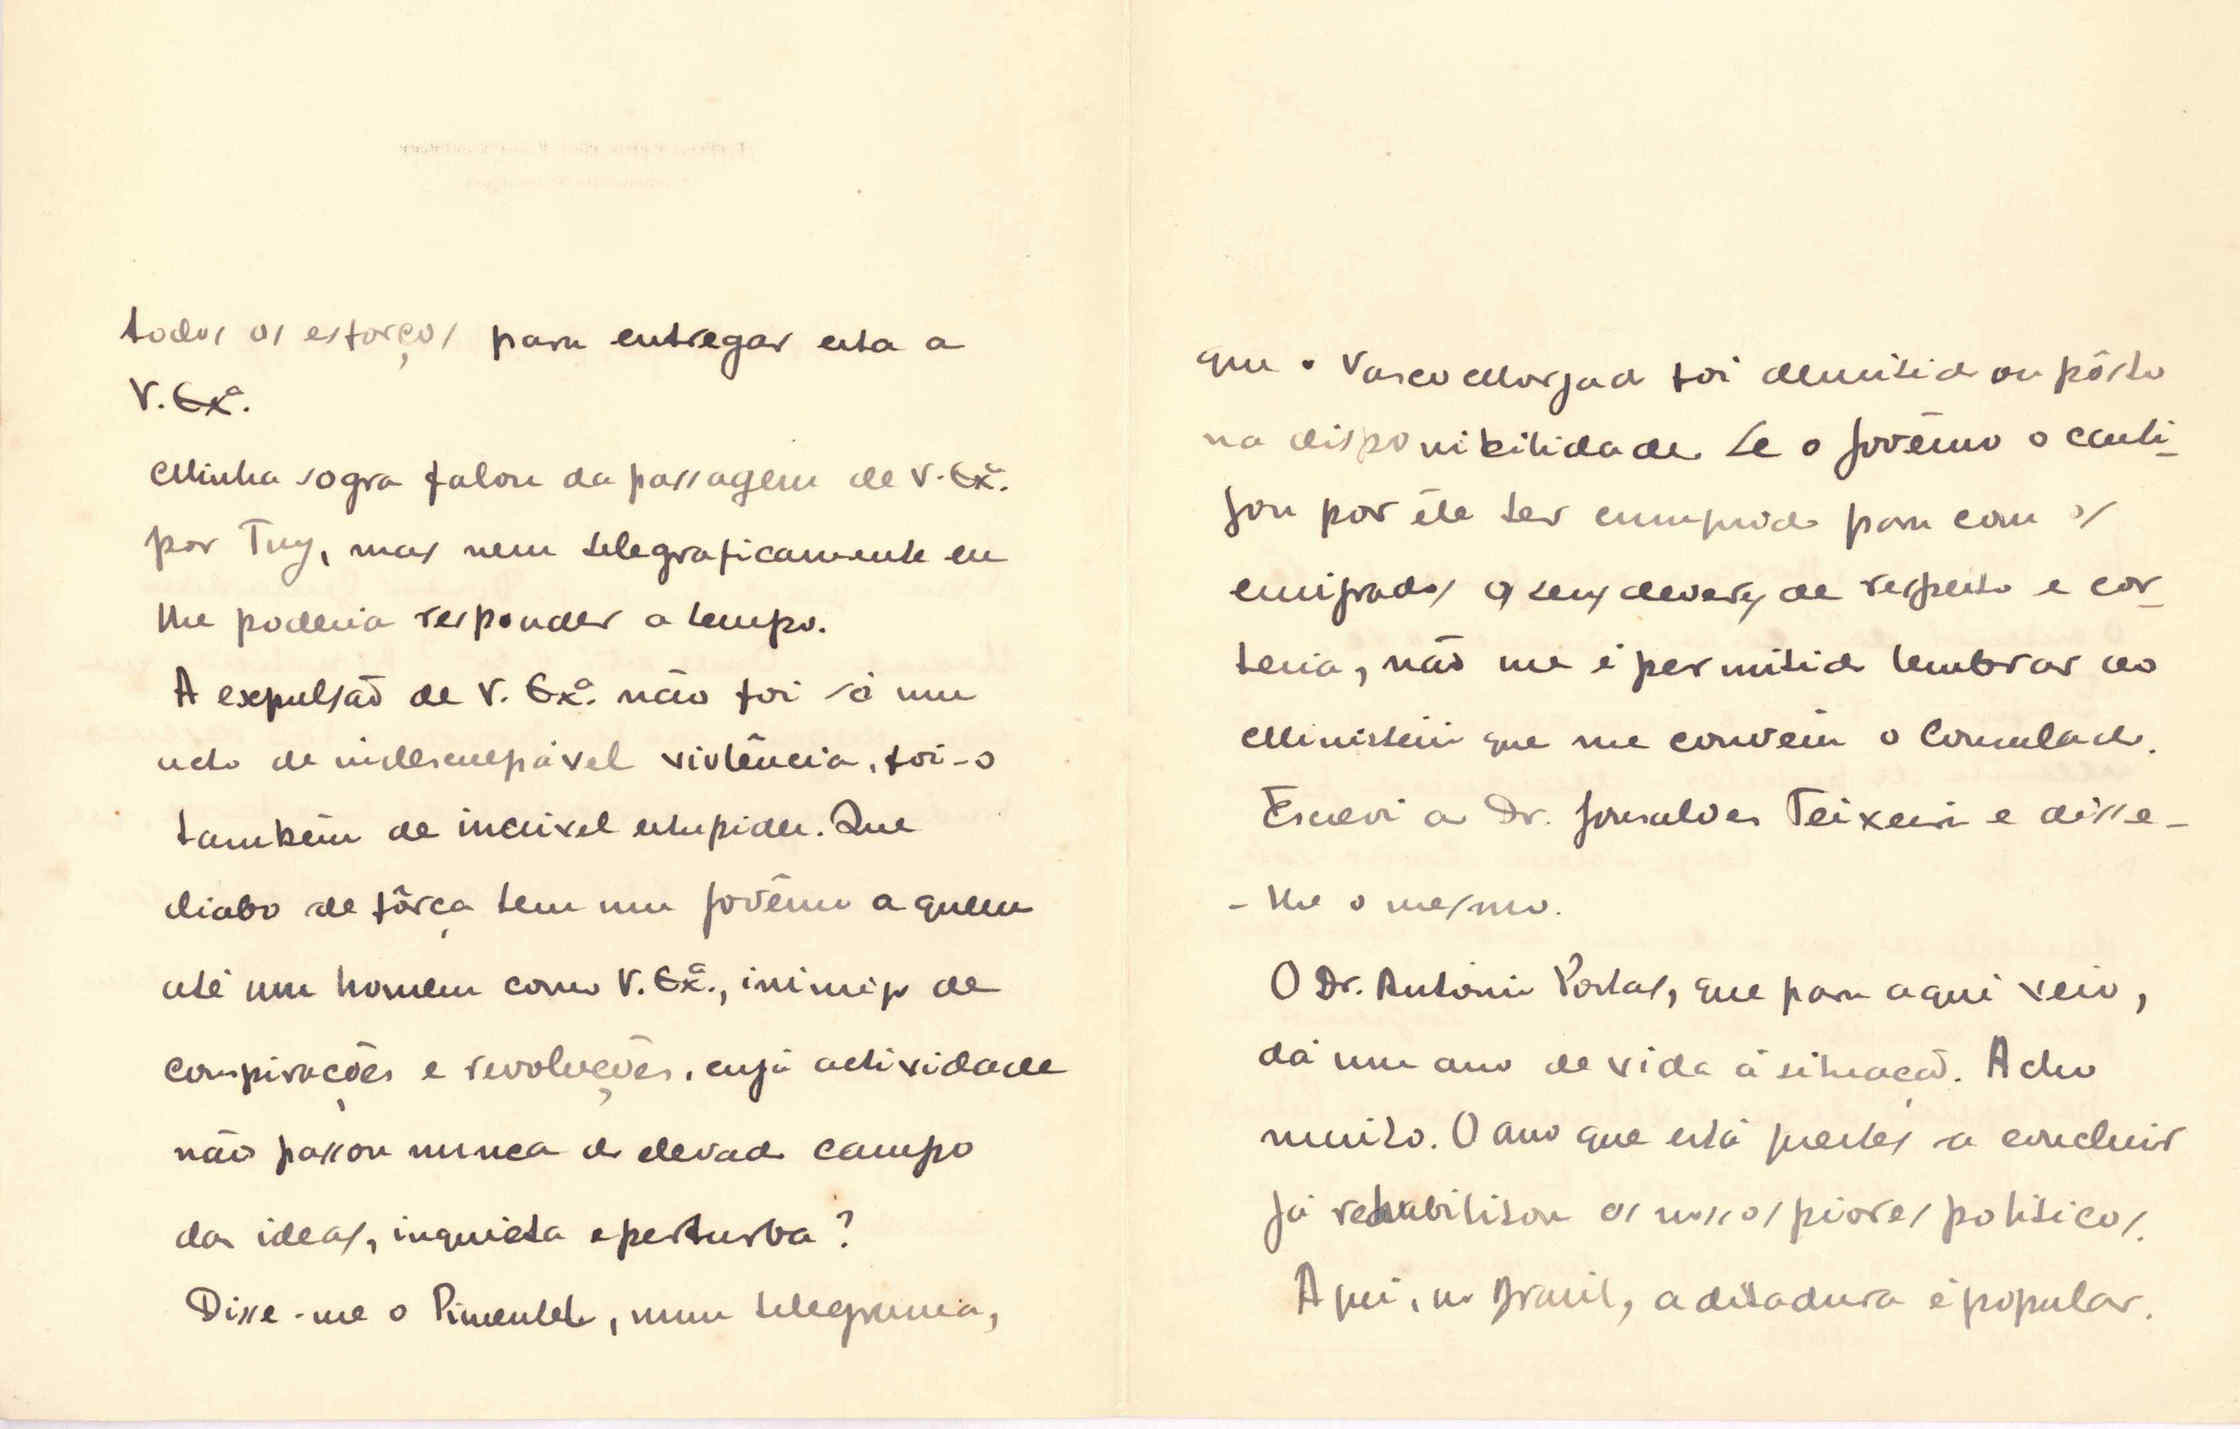 todos os esforços para entregar esta a
V. Exª.
Minha sogra falou da passagem de V. Exª.
por Tuy, mas nem telegraficamente eu
lhe poderia responder a tempo.
A expulsão de V. Exª. não foi só um
acto de indesculpável violência, foi-o
também de incrivel estupidez. Que
diabo de fôrça tem um govêrno a quem
até um homem como V. Exª., inimigo de
conspirações e revoluções, cuja actividade
não passou nunca do elevado campo
das ideas, inquieta e perturba?
Disse-me o Pimentel, num telegrama,
que o Vasco Morgado foi demitido ou pôsto
na disponibilidade. Se o govêrno o casti-
gou por êle ter cumprido para com os
emigrados os seus deveres de respeito e cor-
tesia, não me é permitido lembrar ao
Ministério que me convém o Consulado.
Escrevi ao Dr. Gonsalves Teixeira e disse-
-lhe o mesmo.
O Dr. António Portas, que para aqui veio,
dá um ano de vida á situação. Acho
muito. O ano que está prestes a concluir
já rehabilitou os nossos piores politicos.
Aqui, no Brasil, a ditadura é popular.